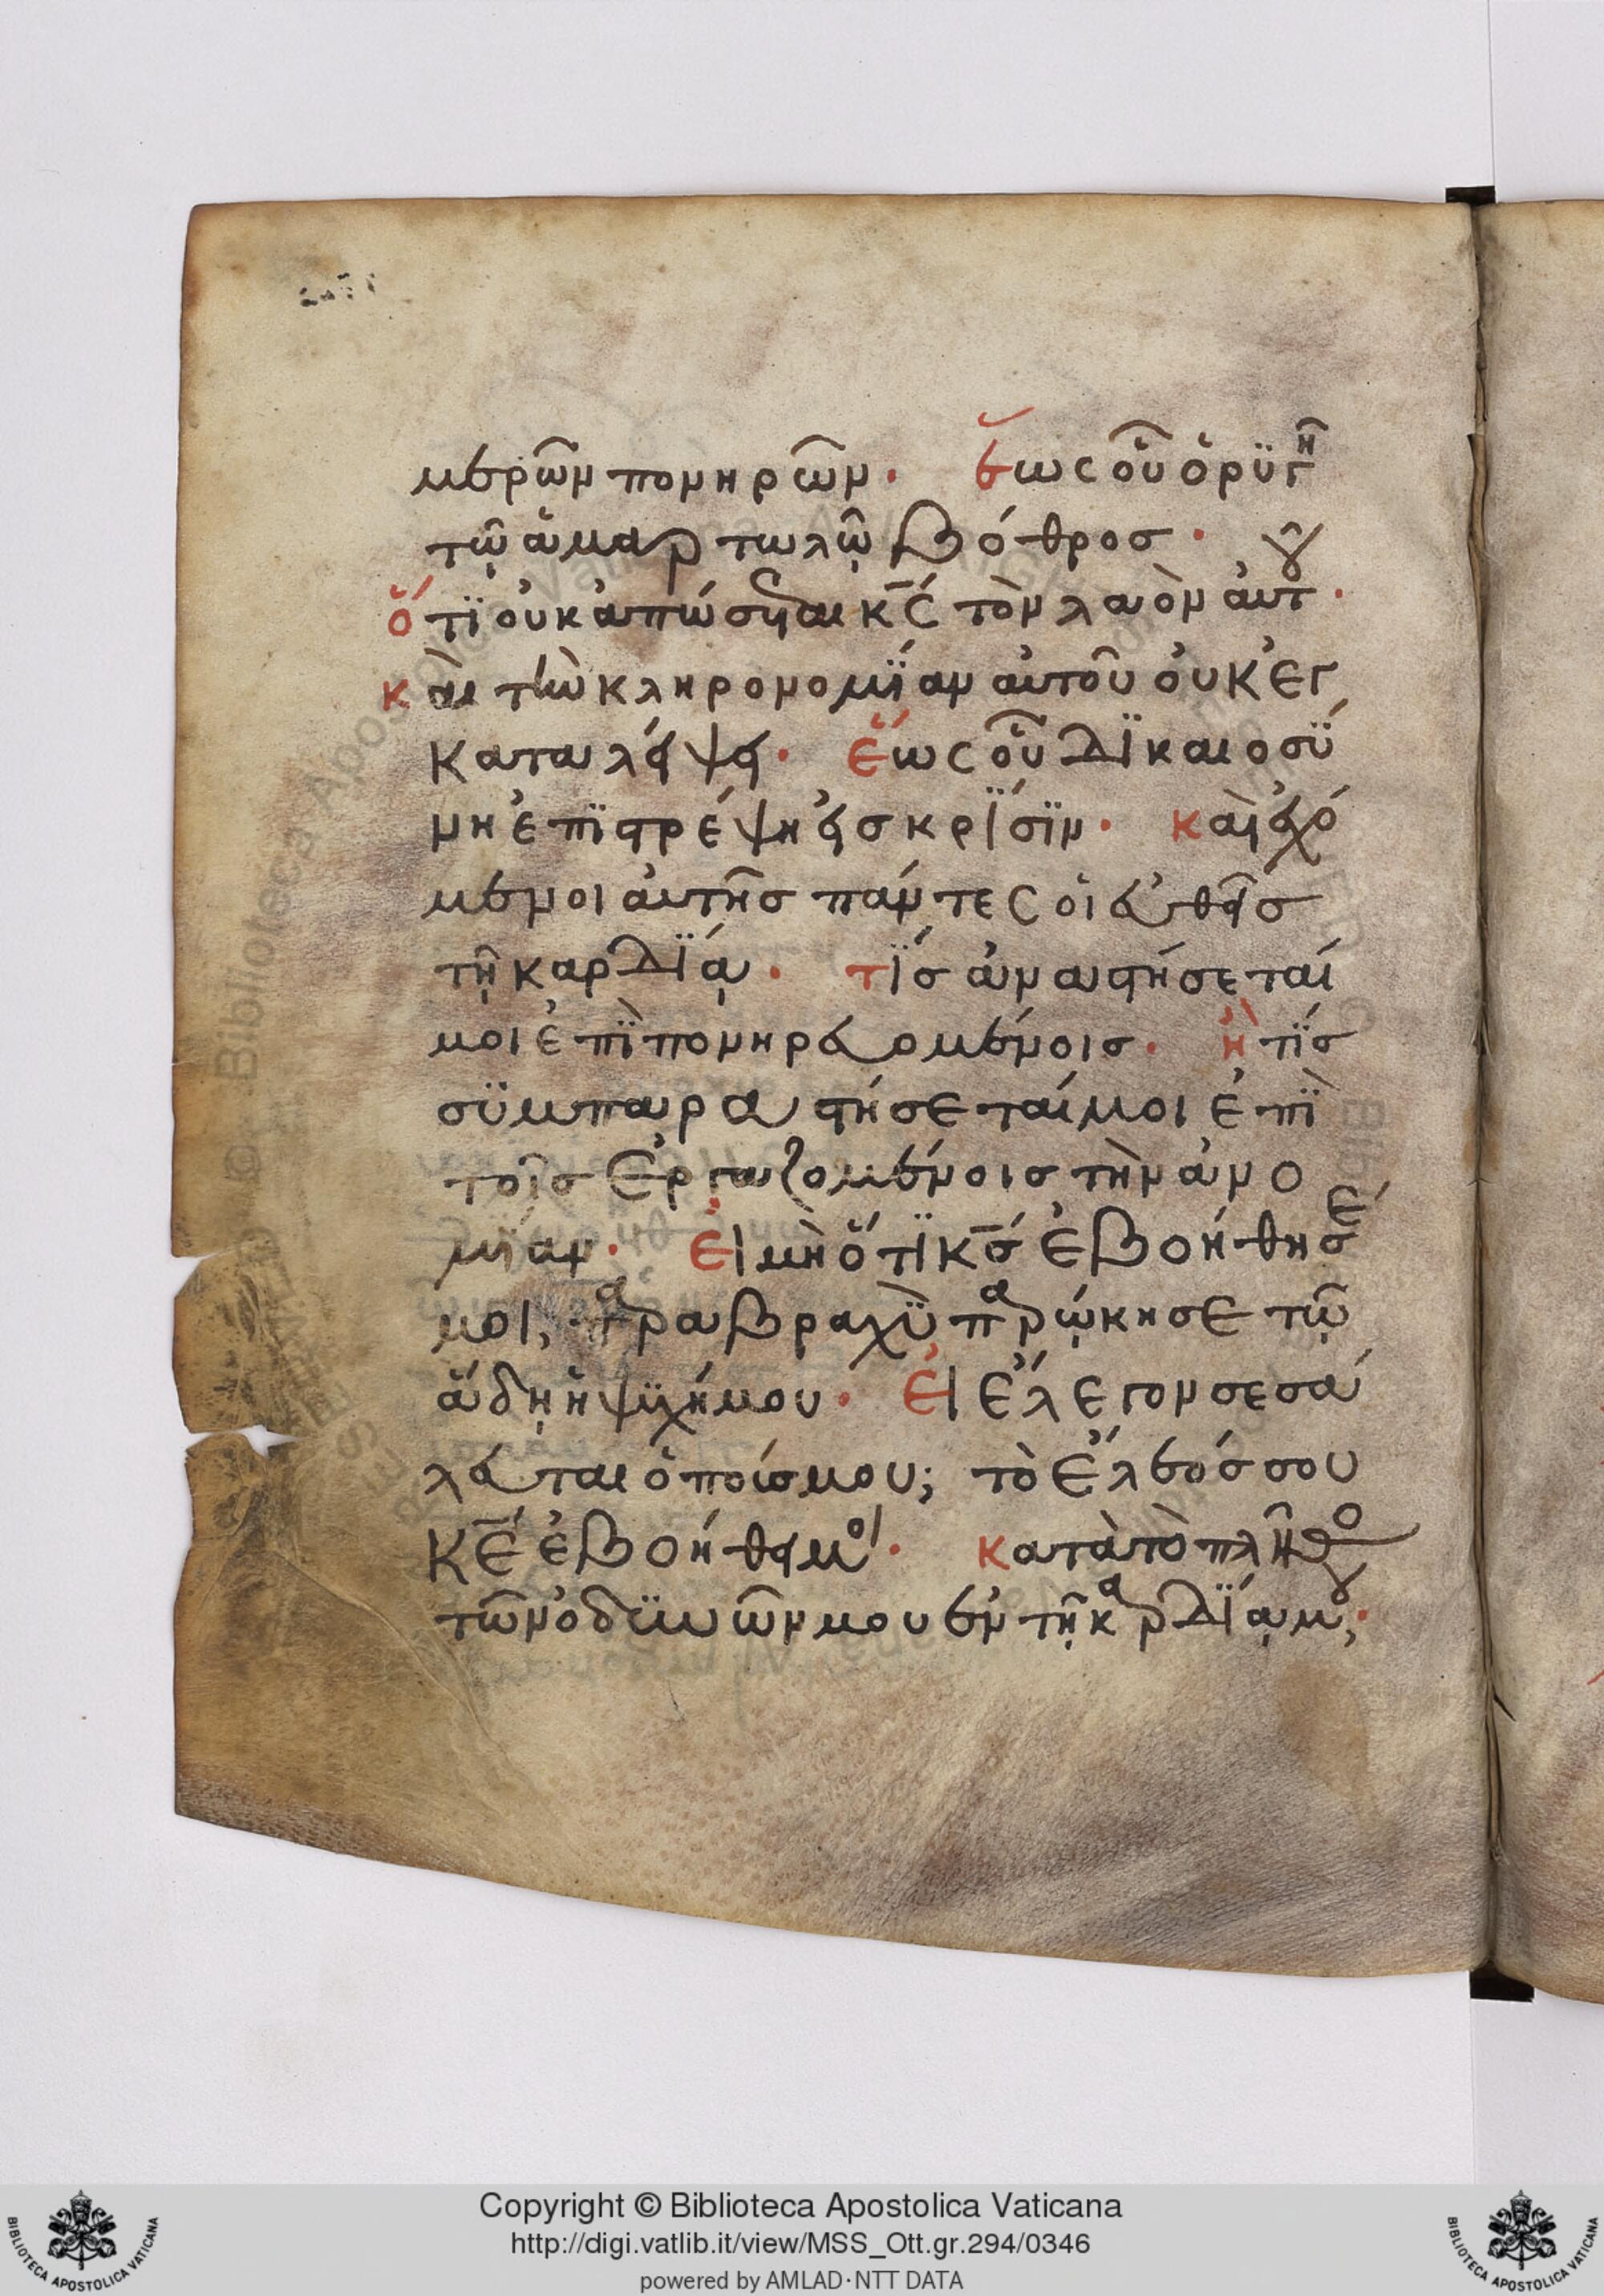 μερῶν πονηρῶν· ἕως οὗ ὀρυγῆ
τῷ ἁμαρτωλῷ βόθρος·
ὅτι οὐκ ἀπώσηται κς τὸν λαὸν αὐτοῦ·
καὶ τὴν κληρονομίαν αὐτοῦ οὐκ ἐγ
καταλείψει· ἕως οὗ δικαιοσύ
νη ἐπιστρέψη εἰς κρίσιν· καὶ ἐχό
μενοι αὐτῆς πάντες οἱ εὐθεῖς
τῇ καρδίᾳ· τίς ἀναστήσεταί
μοι ἐπὶ πονηρευομένοις· ἢ τίς
συμπαραστήσεταί μοι ἐπὶ
τοῖς ἐργαζομένοις τὴν ἀνο
μίαν· εἰ μὴ ὅτι κς ἐβοήθησέ
μοι, παρα βραχὺ παρῴκησε τῷ
ἅδῃ ἡ ψυχή μου· εἰ ἔλεγον σεσά
λευται ὁ ποῦς μου; τὸ ἔλεός σου
κε ἐβοήθει μοι· κατὰ τὸ πλῆθος
τῶν ὀδυνῶν μου ἐν τῇ καρδίᾳ μου,·
Copyright © Biblioteca Apostolica Vaticana
http://digi.vatlib.it/view/MSS_Ott.gr.294/0346
powered by AMLAD·NTT DATA
BIBLIOTECA APOSTOLICA VATICANA
BIBLIOTECA APOSTOLICA VATICANA